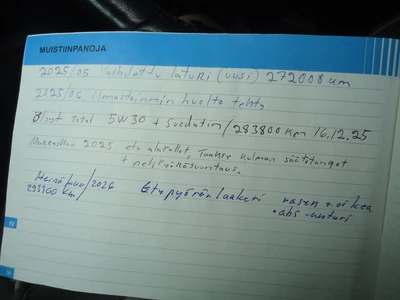 MUISTIINPANOJA
2025/05 Vaihdettu laturi (uusi) 272000 km
2025/06 ilmastoinnin huolto tehty
Öljyt Total 5W30 + suodatin / 283800 km 16.12.25
Marraskuu 2025 etu alatallat, Taakse kulman säätötangot
+ nelipyöräsuuntaus.
Heinäkuu/2026 Etupyörän laakeri vasen + oikea
293300 km • abs-anturi
IV